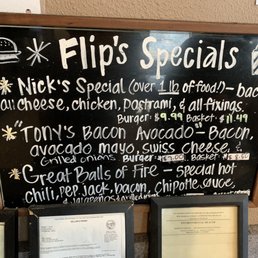 Flip's Specials
* Nick's Special (over 1 lb of food!) - bac
cheese, chicken, Pastrami, & all fixings.
Burger: $9.99 Basket: $11.49
* "TONY'S BACON AVOCADO" - BACON,
avocado mayo, swiss cheese, &
Grilled onions. Burger: Basket:
* Great Balls of Fire - special hot
chili, pep jack, bacon, chipotle sauce,